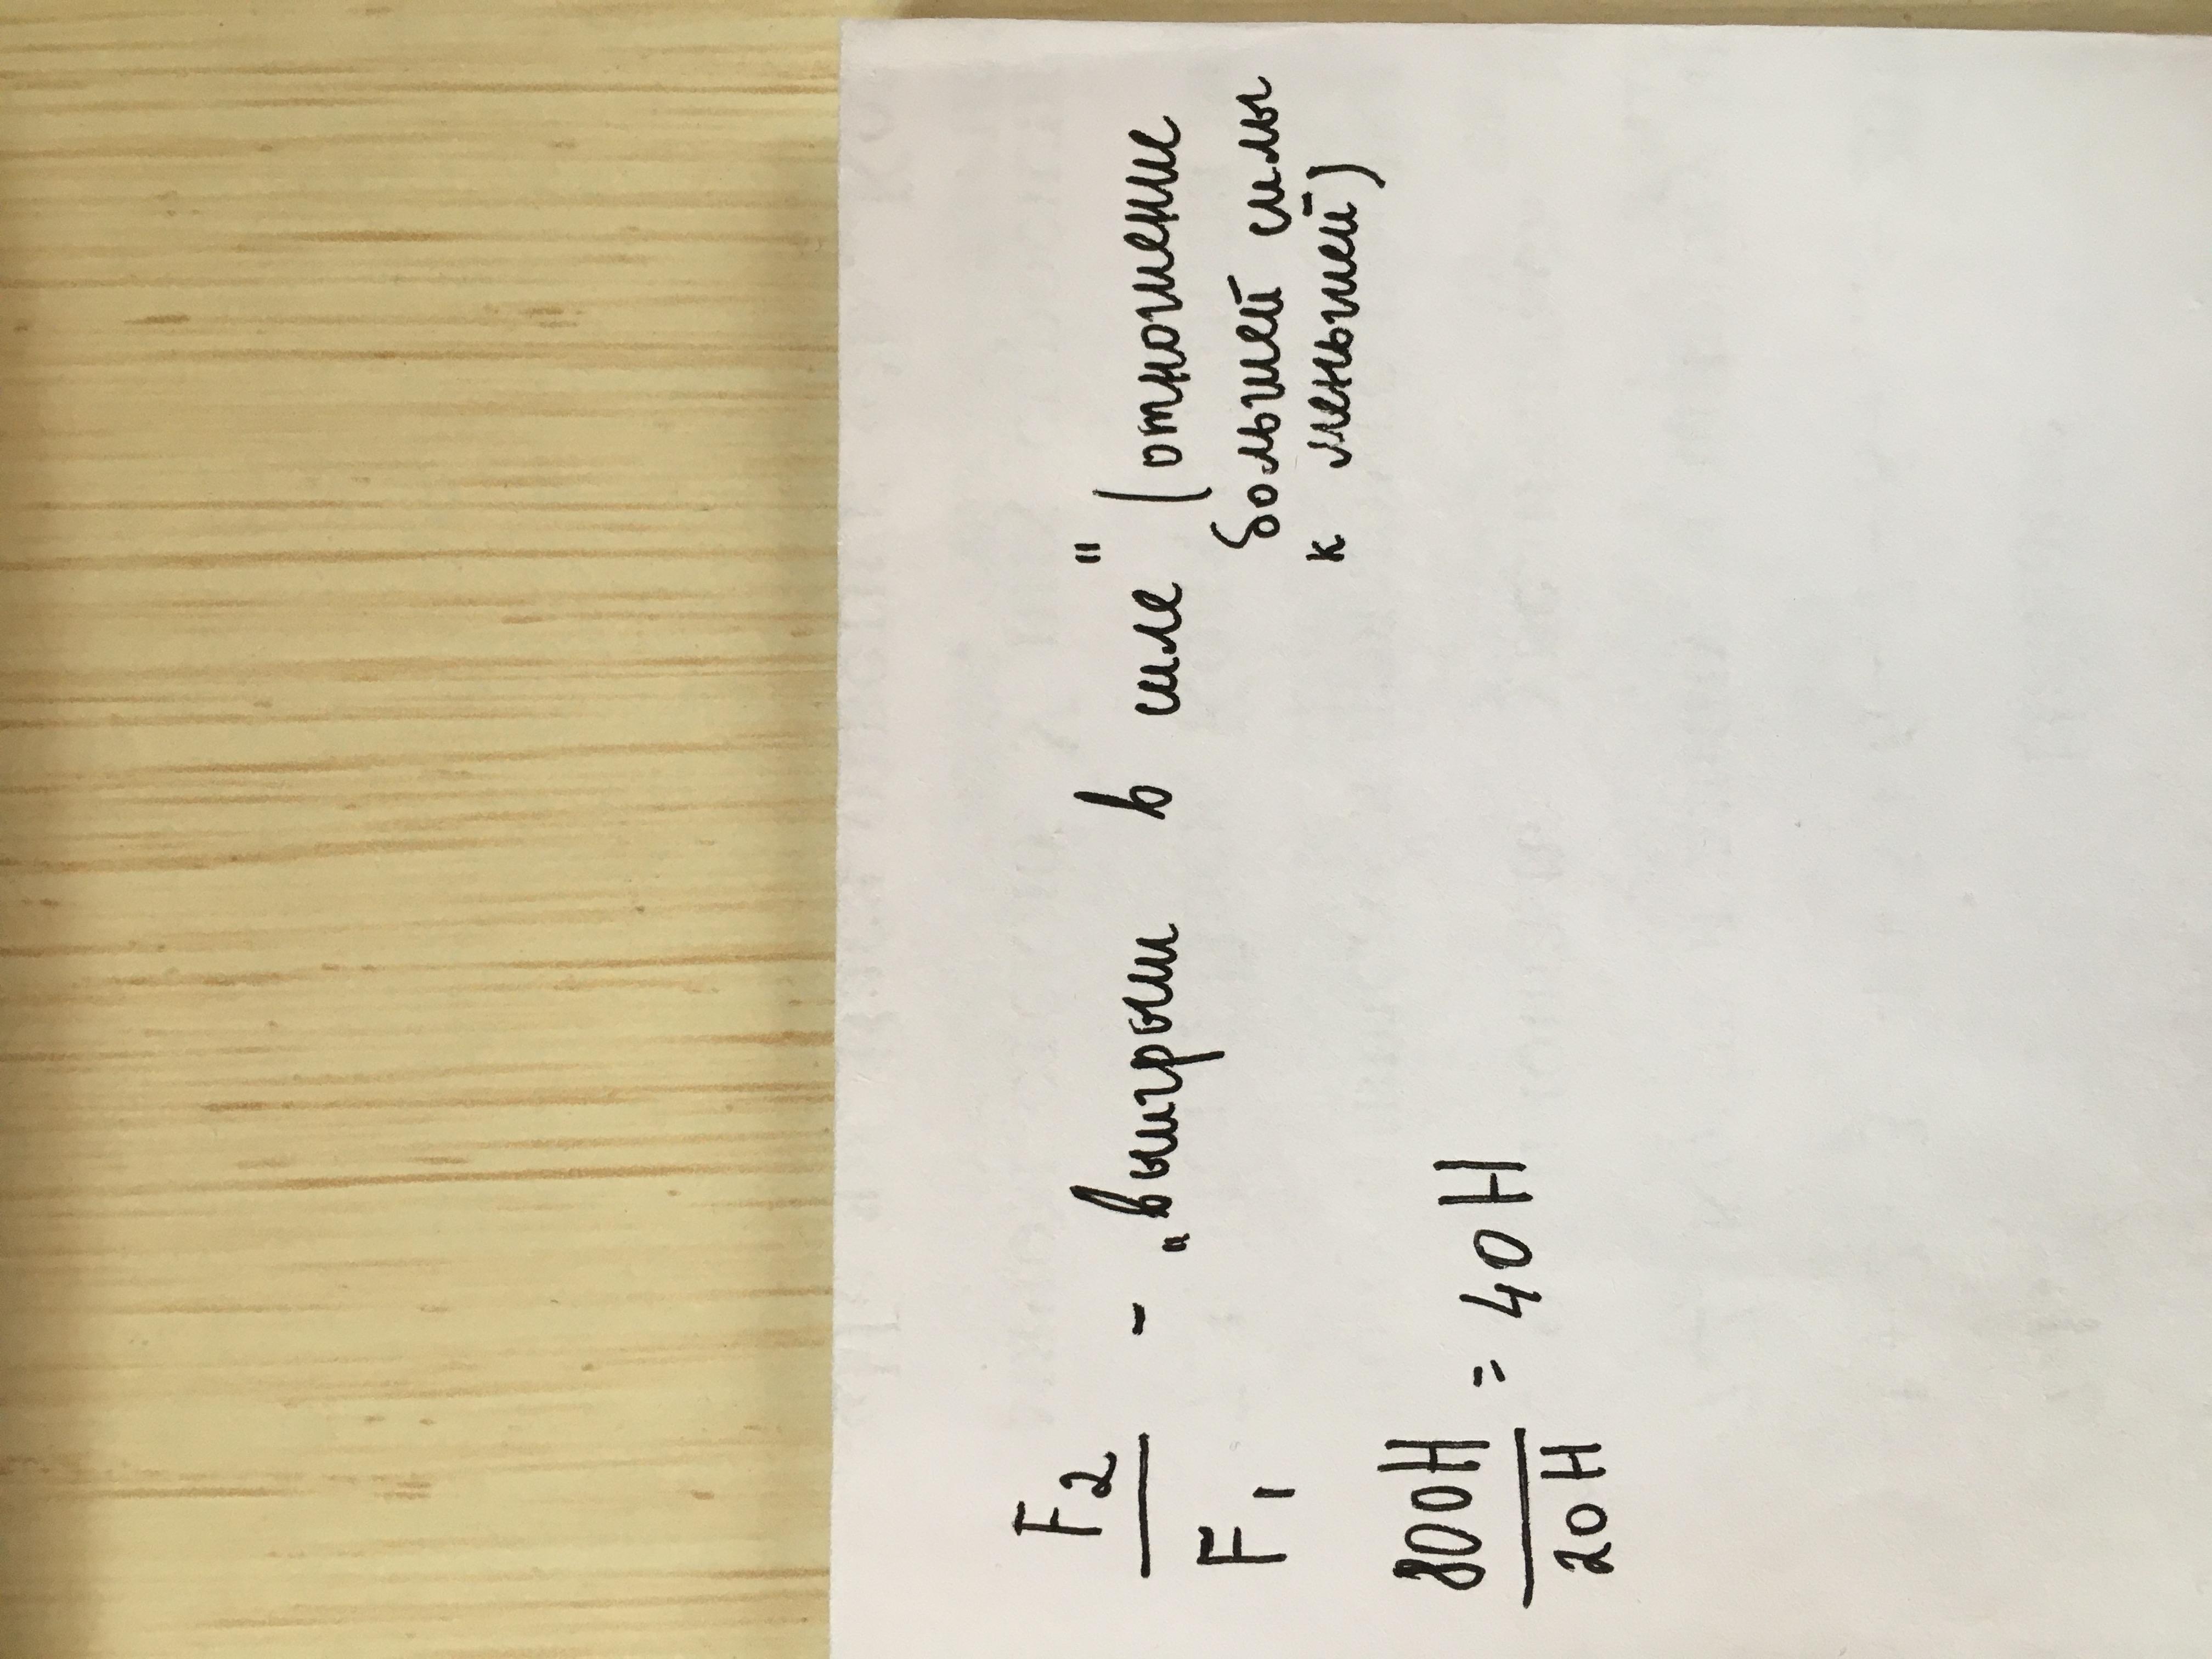 F₂
— - „выигрыш в силе" (отношение
F₁ большей силы
к меньшей)
800Н
— = 40Н
20Н